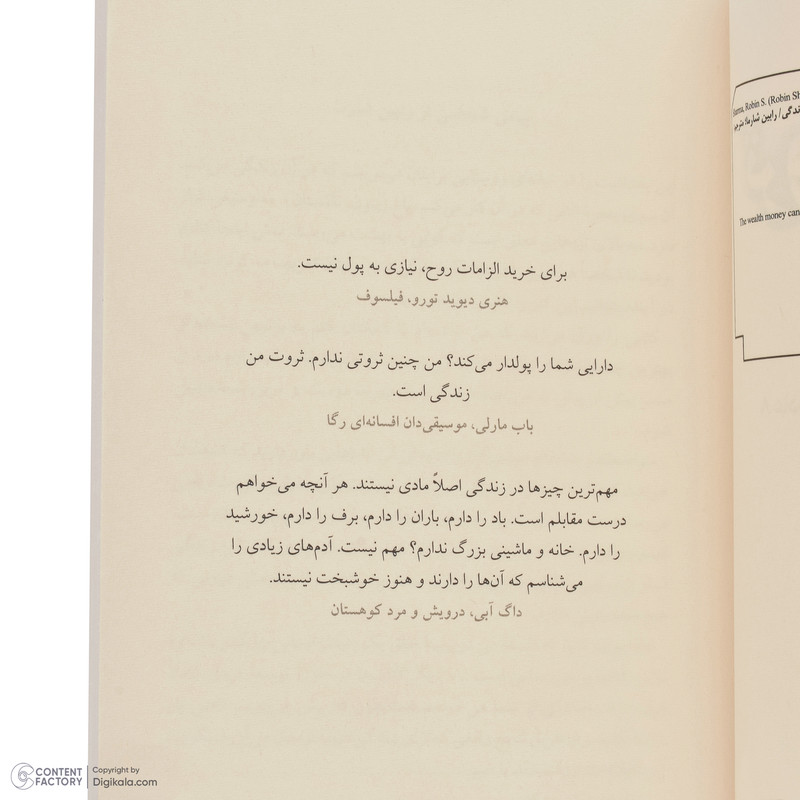 برای خرید الزامات روح، نیازی به پول نیست.
هنری دیوید تورو، فیلسوف
دارایی شما را پولدار می‌کند؟ من چنین ثروتی ندارم. ثروت من
زندگی است.
باب مارلی، موسیقی‌دان افسانه‌ای رگا
مهم‌ترین چیزها در زندگی اصلاً مادی نیستند. هر آنچه می‌خواهم
درست مقابلم است. باد را دارم، باران را دارم، برف را دارم، خورشید
را دارم. خانه و ماشینی بزرگ ندارم؟ مهم نیست. آدم‌های زیادی را
می‌شناسم که آن‌ها را دارند و هنوز خوشبخت نیستند.
داگ آبی، درویش و مرد کوهستان
Robin S. (Robin
رابین شارما؛
The wealth money
CONTENT FACTORY
Copyright by
Digikala.com